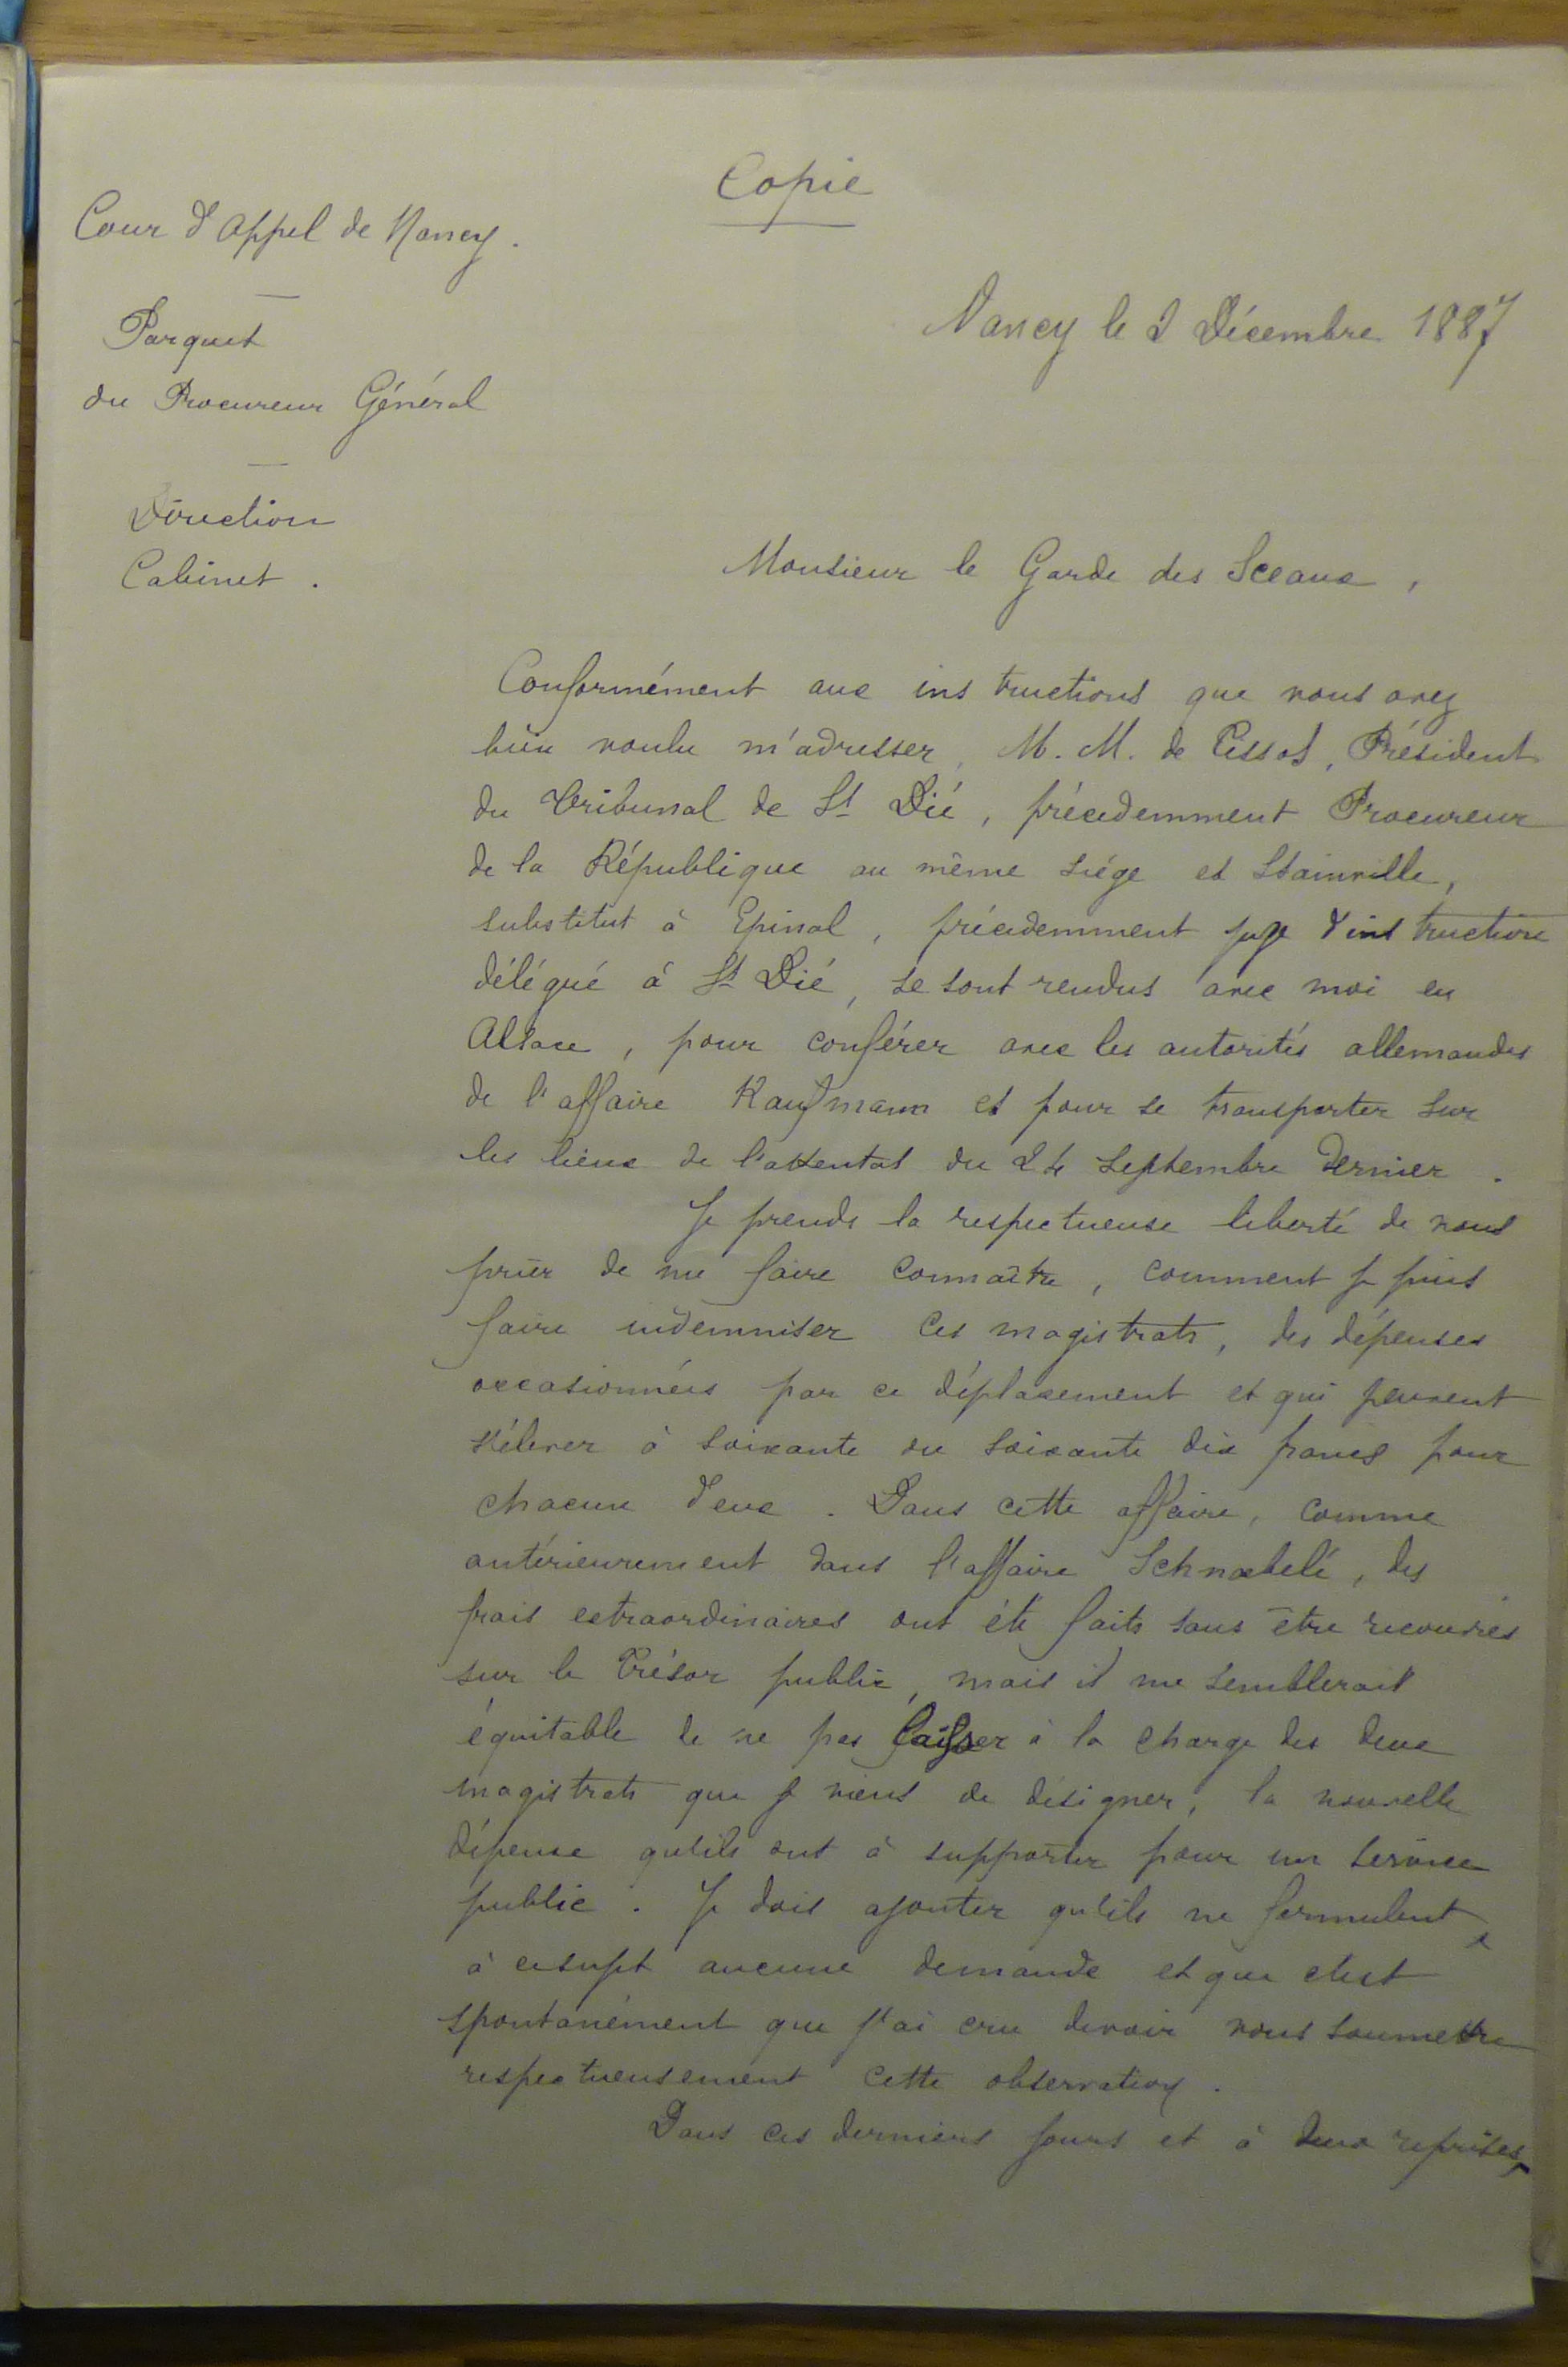 Copie
Cour d'appel de Nancy.
Parquet
du Procureur Général
Direction
Cabinet.
Nancy le 2 Décembre 1887
Monsieur le Garde des Sceaux,
Conformément aux instructions que vous avez
bien voulu m'adresser, M. M. de Pissot, Président
du Tribunal de St Dié, précédemment Procureur
de la République au même siège et Stainville,
substitut à Epinal, précédemment juge d'instruction
délégué à St Dié, se sont rendus avec moi en
Alsace, pour conférer avec les autorités allemandes
de l'affaire Kaufmann et pour se transporter sur
les lieux de l'attentat du 24 Septembre dernier.
Je prends la respectueuse liberté de vous
prier de me faire connaître, comment je puis
faire indemniser ces magistrats, des dépenses
occasionnées par ce déplacement et qui peuvent
s'élever à soixante ou soixante dix francs pour
chacun d'eux. Dans cette affaire, comme
antérieurement dans l'affaire Schnæbelé, des
frais extraordinaires ont été faits sans être recouvrés
sur le Trésor public, mais il me semblerait
équitable de ne pas laisser à la charge des deux
magistrats que je viens de désigner, la nouvelle
dépense qu'ils ont à supporter pour un service
public. Je dois ajouter qu'ils ne formulent
à ce sujet aucune demande et que c'est
spontanément que j'ai cru devoir vous soumettre
respectueusement cette observation.
Dans ces derniers jours et à deux reprises,